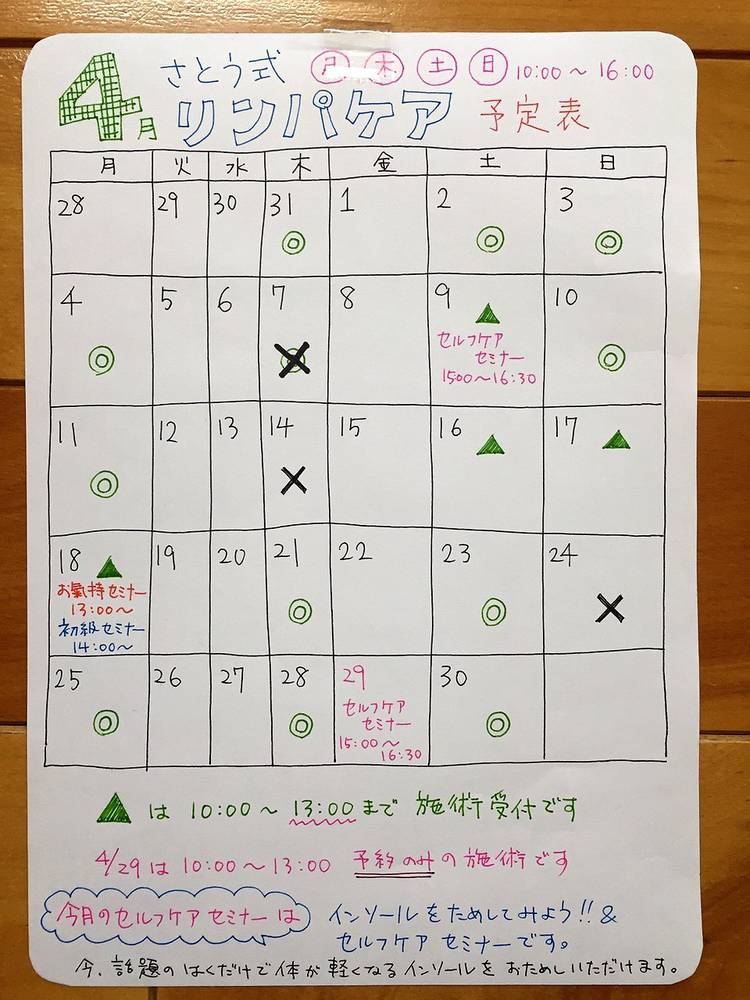 4月 さとう式 月 木 土 日 10:00～16:00
リンパケア 予定表
月 火 水 木 金 土 日
28 29 30 31 1 2 3
◎ ◎ ◎
4 5 6 7 8 9 10
◎ × ▲ ◎
セルフケア
セミナー
1500～16:30
11 12 13 14 15 16 17
◎ × ▲ ▲
18 19 20 21 22 23 24
▲ ◎ ◎ ×
お氣持セミナー
13:00～
初級セミナー
14:00～
25 26 27 28 29 30
◎ ◎ ◎
セルフケア
セミナー
15:00～
16:30
▲ は 10:00～13:00まで 施術受付です
4/29は10:00～13:00 予約のみの施術です
今月のセルフケアセミナーは インソールをためしてみよう!!&
セルフケアセミナーです。
今、話題のはくだけで体が軽くなるインソールをおためしいただけます。